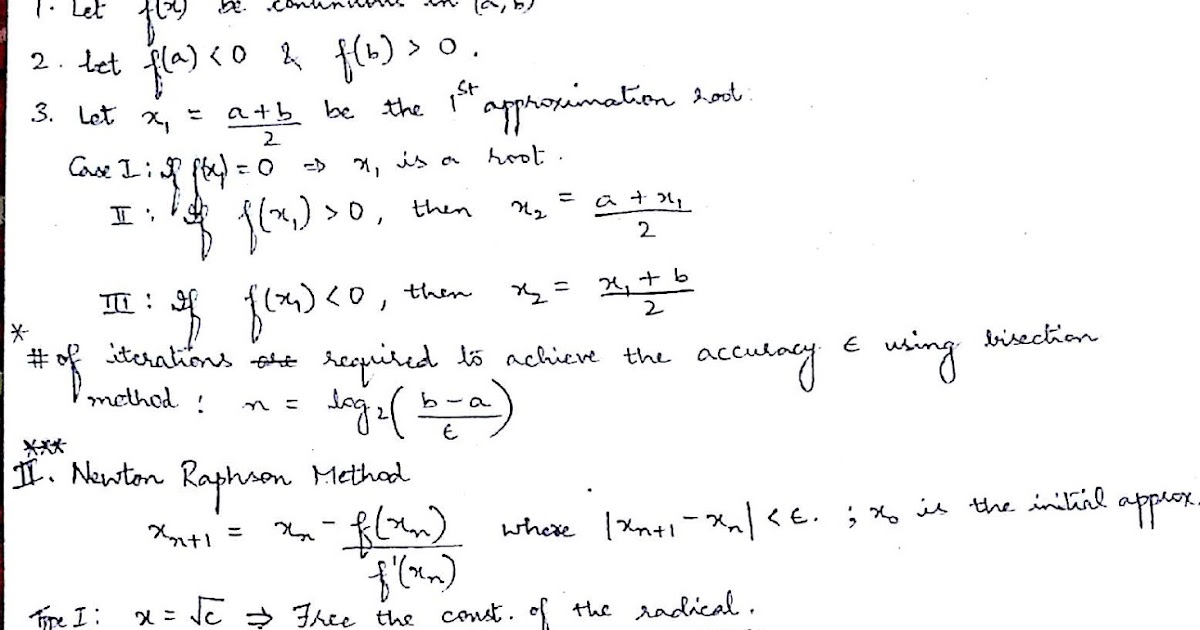 1. Let f(x) be continuous in (a, b)
2. Let f(a) < 0 & f(b) > 0.
3. Let x₁ = (a+b)/2 be the 1st approximation root.
Case I: If f(x₁) = 0 ⇒ x₁ is a root.
II: If f(x₁) > 0, then x₂ = (a + x₁)/2
III: If f(x₁) < 0, then x₂ = (x₁ + b)/2
*
# of iterations required to achieve the accuracy ε using bisection
method : n = log₂((b-a)/ε)
***
II. Newton Raphson Method
xₙ₊₁ = xₙ - f(xₙ)/f'(xₙ) where |xₙ₊₁ - xₙ| < ε. ; x₀ is the initial approx.
Type I: x = √c ⇒ Free the const. of the radical.